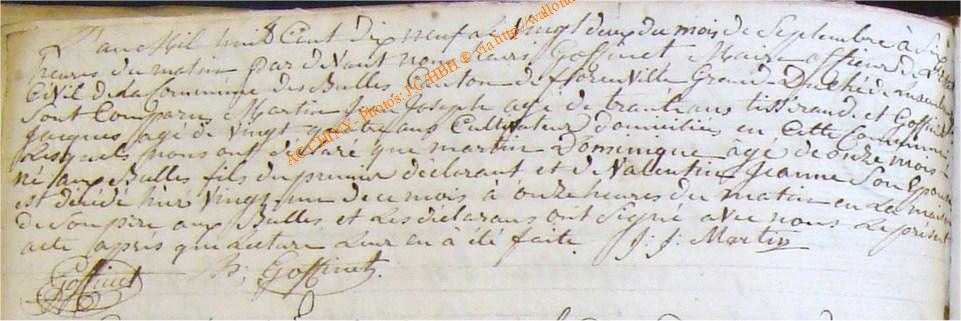 L'an Mil huit Cent Dix neuf Le Vingt deux du mois de Septembre à Six
heures du matin par devant nous Goffinet Maire officier de l'Etat
Civil de la Commune des Bulles Canton de florenville Grand Duché de
Sont Comparus Martin Jean Joseph agé de trente ans tisserand, et Goffinet
Jacques agé de Vingt quatre ans Cultivateur domiciliés en Cette Commune
Lesquels nous ont declaré que martin Dominique âgé de onze mois
né aux Bulles fils du premier déclarant et de Valentin Jeanne Son Epouse
est décidé hier Vingt une de ce mois à onze heures du matin en La maison
de Son père aux Bulles et Les déclarans ont Signé avec nous Le présent
acte après que Lecture Leur en à été faite. J. J. Martin
Goffinet Goffinet.
ACT HECV Photos: J GHBH © via http://wallonia